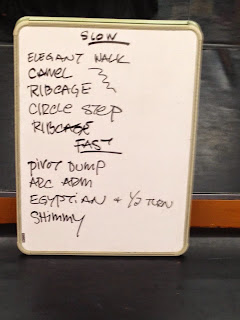 SLOW
ELEGANT WALK
CAMEL
RIBCAGE
CIRCLE STEP
RIBCAGE
FAST
PIVOT DUMP
ARC ARM
EGYPTIAN + 1/2 TURN
SHIMMY